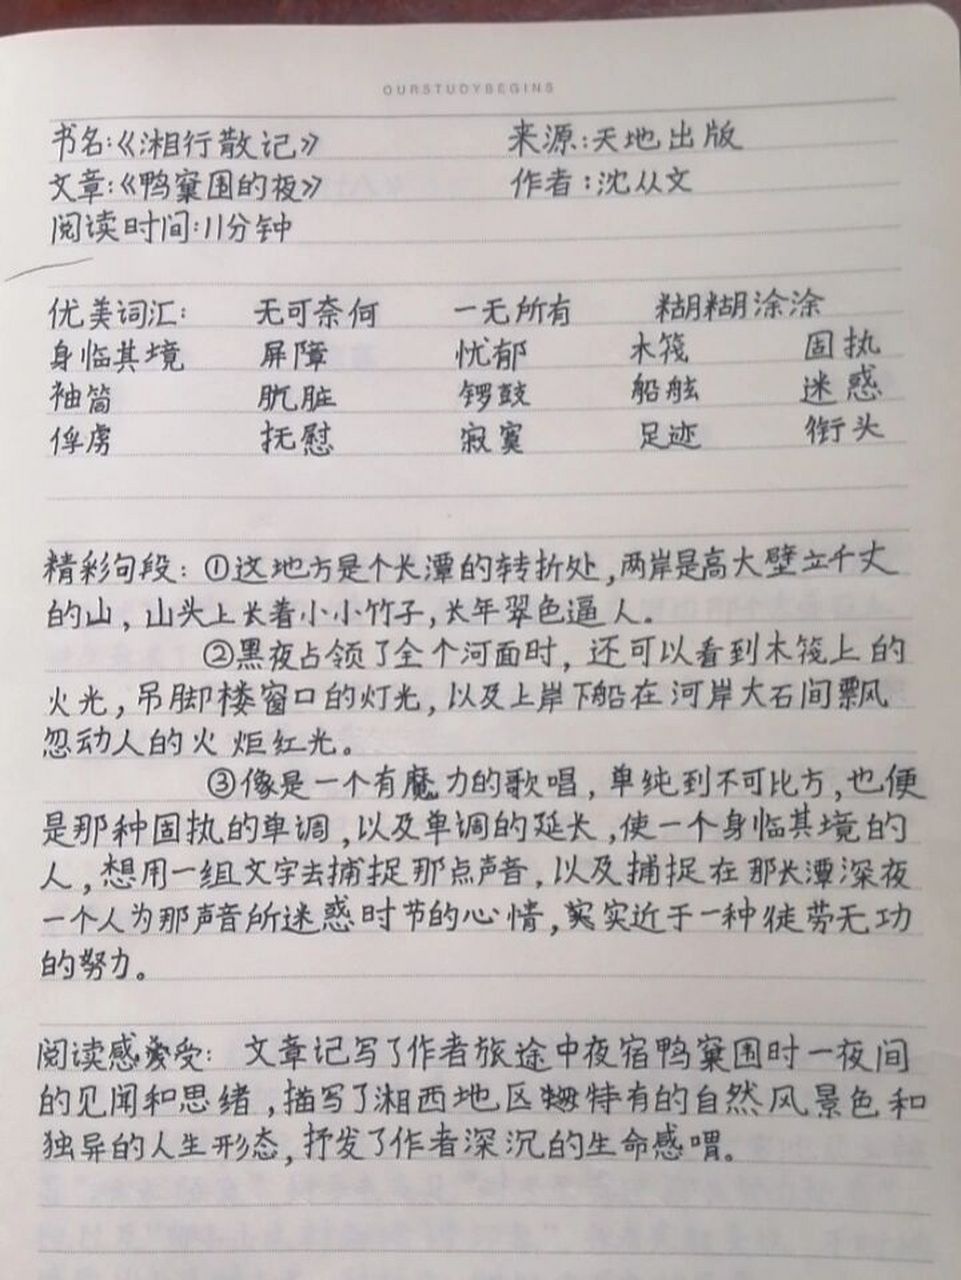 OURSTUDYBEGINS
书名:《湘行散记》 来源:天地出版
文章:《鸭窠围的夜》 作者:沈从文
阅读时间:11分钟
优美词汇: 无可奈何 一无所有 糊糊涂涂
身临其境 屏障 忧郁 木筏 固执
袖筒 肮脏 锣鼓 船舷 迷惑
俘虏 抚慰 寂寞 足迹 衔头
精彩句段:①这地方是个长潭的转折处,两岸是高大壁立千丈
的山,山头上长着小小竹子,长年翠色逼人。
②黑夜占领了全个河面时,还可以看到木筏上的
火光,吊脚楼窗口的灯光,以及上岸下船在河岸大石间飘
忽动人的火炬红光。
③像是一个有魔力的歌唱,单纯到不可比方,也便
是那种固执的单调,以及单调的延长,使一个身临其境的
人,想用一组文字去捕捉那点声音,以及捕捉在那长潭深夜
一个人为那声音所迷惑时节的心情,实近于一种徒劳无功
的努力。
阅读感受: 文章记写了作者旅途中夜宿鸭窠围时一夜间
的见闻和思绪,描写了湘西地区特有的自然风景色和
独异的人生形态,抒发了作者深沉的生命感喟。